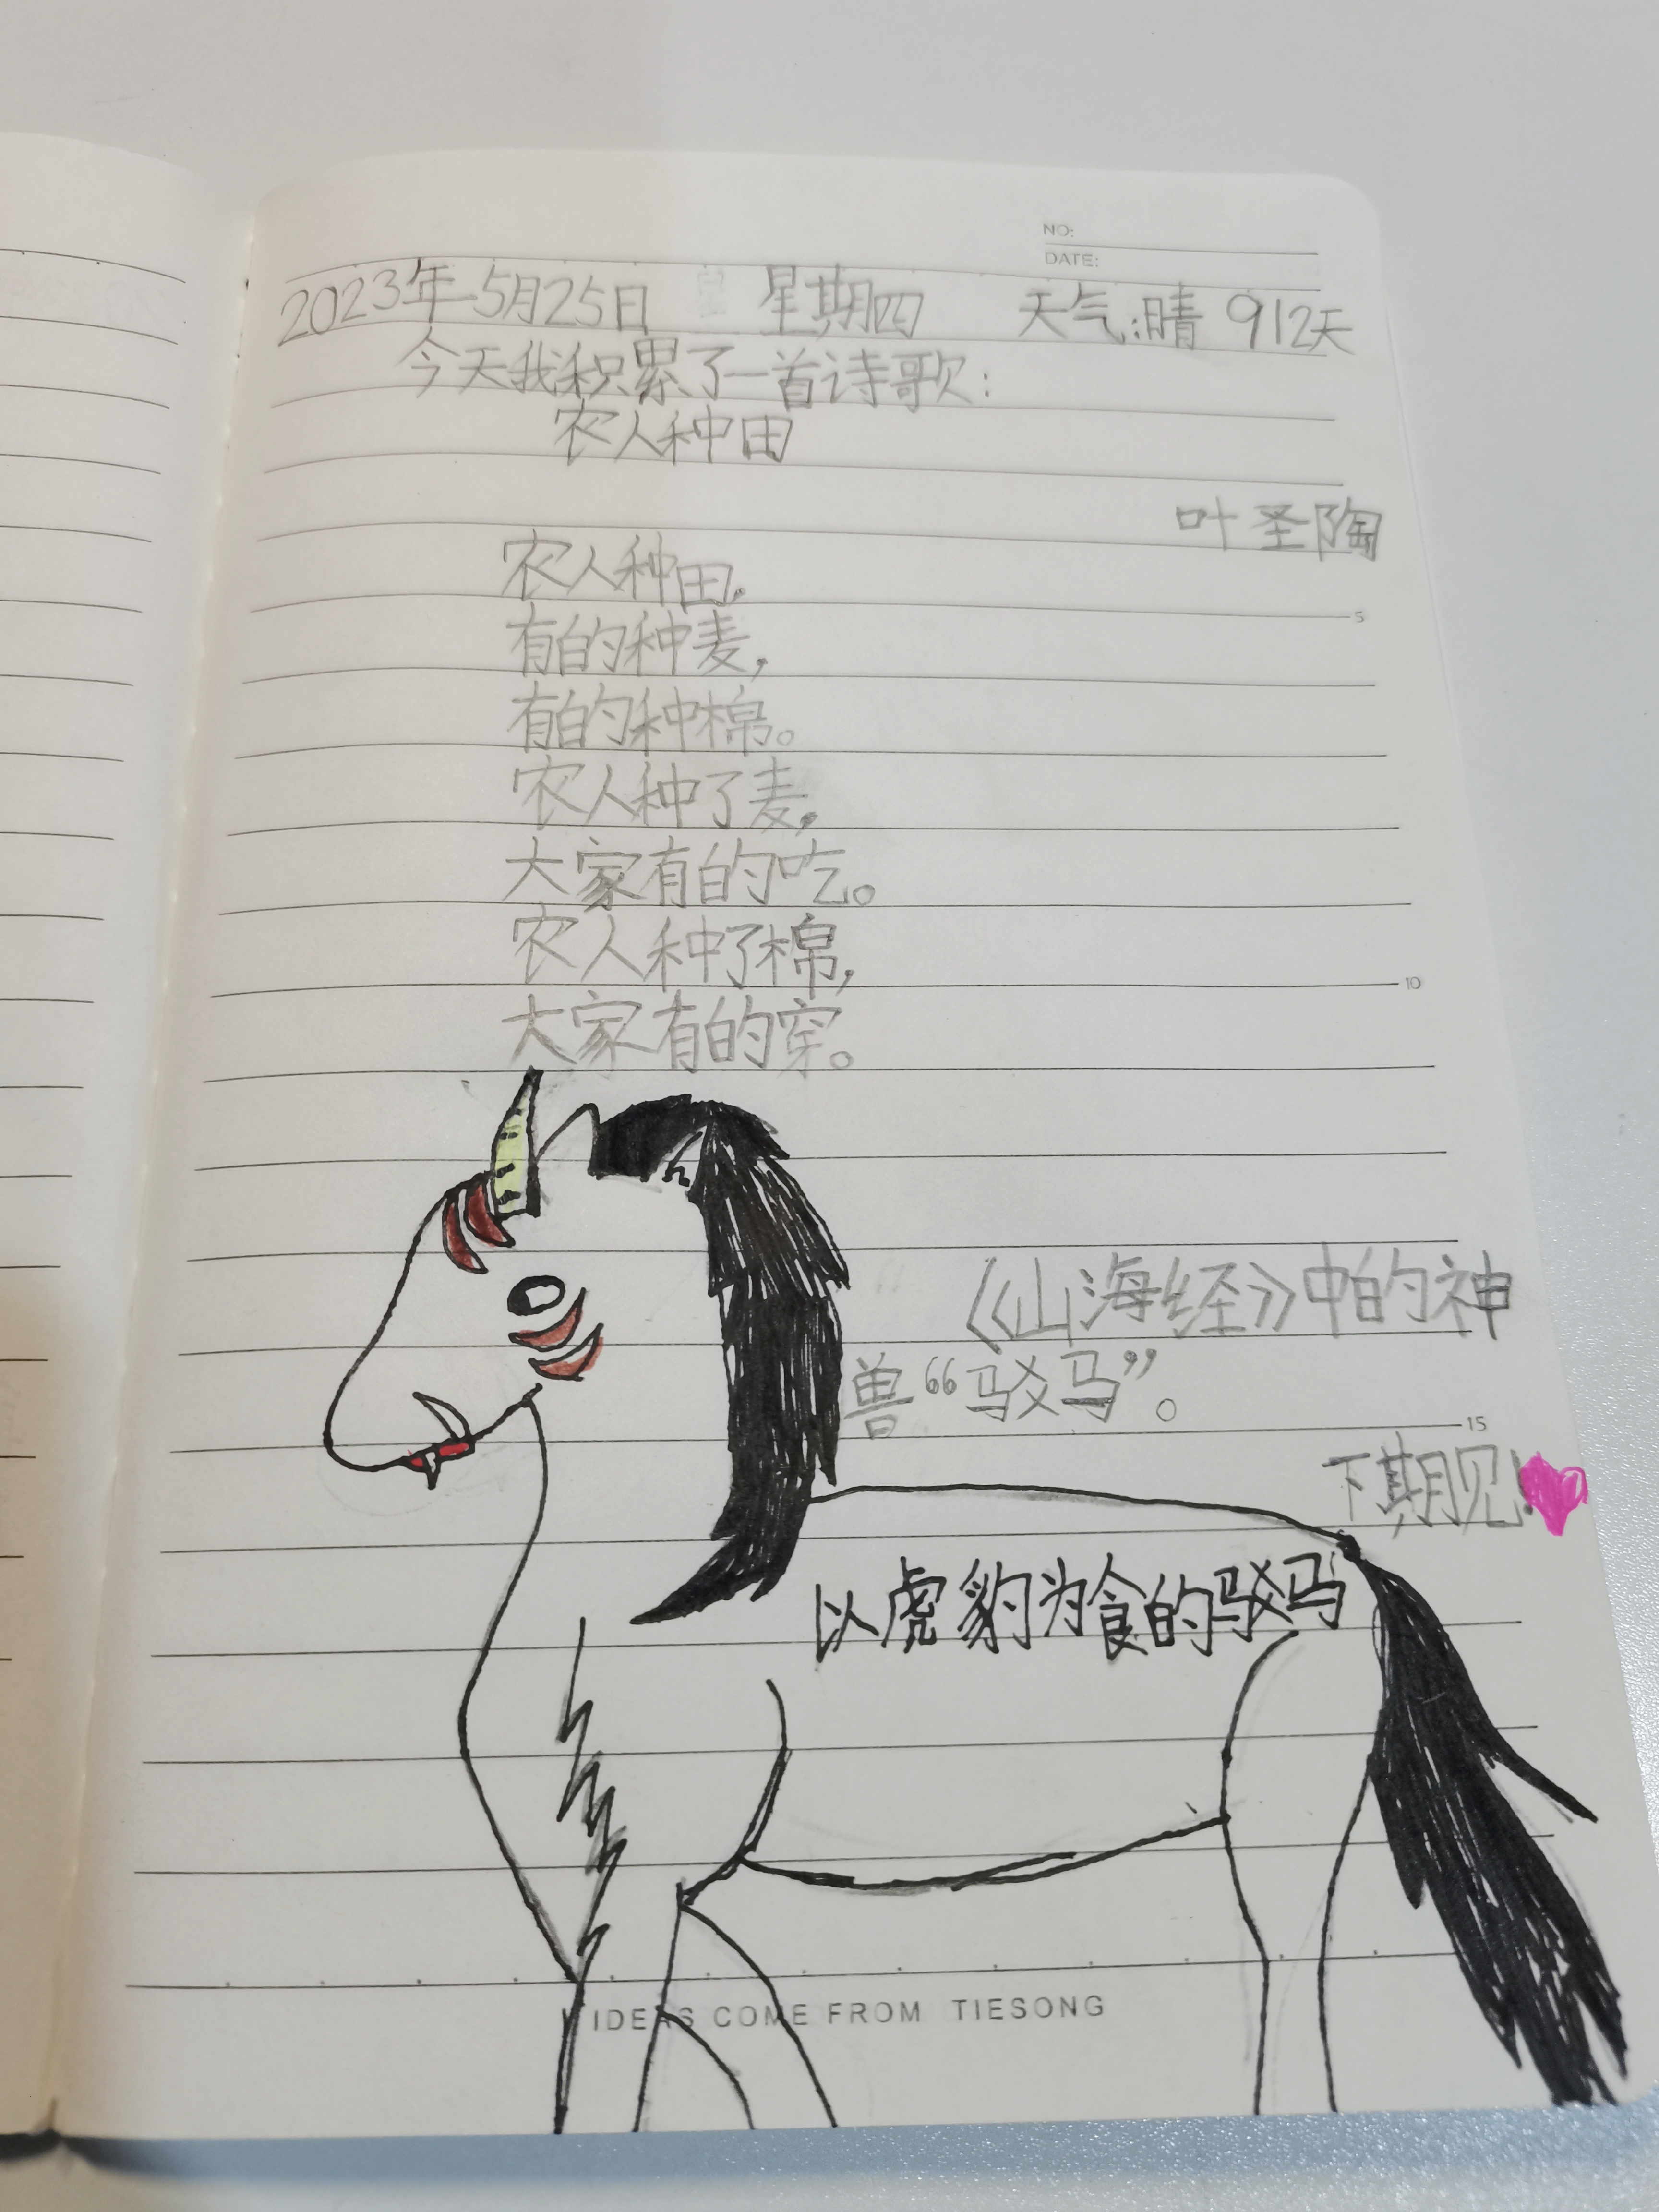 NO:
DATE:
2023年5月25日 星期四 天气:晴 912天
今天我积累了一首诗歌:
农人种田
叶圣陶
农人种田,
有的种麦,
有的种棉。
农人种了麦,
大家有的吃。
农人种了棉,
大家有的穿。
《山海经》中的神
兽“驳马”。
下期见!
以虎豹为食的驳马
5
10
15
IDEAS COME FROM TIESONG